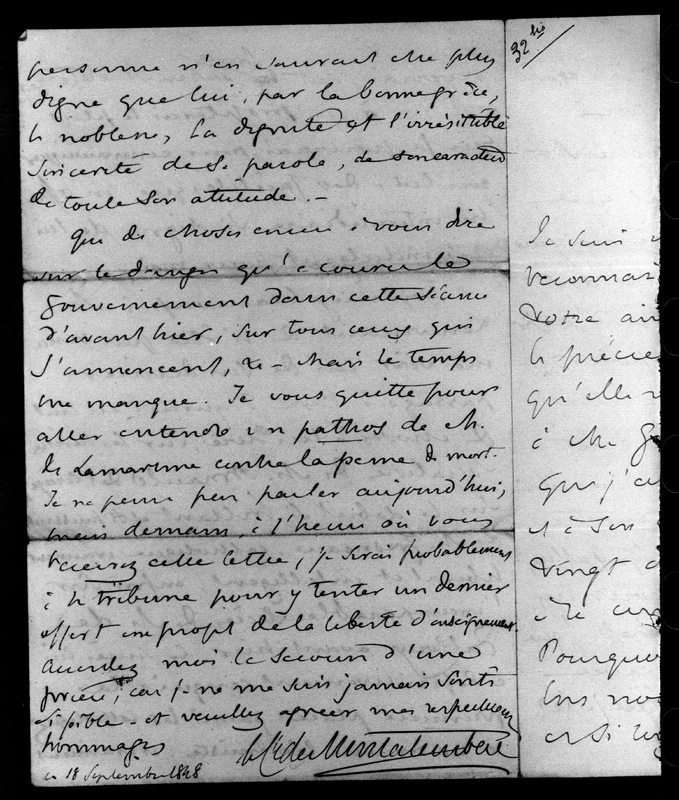 personne n'en saurait être plus
digne que lui, par la bonne grâce,
la noblesse, la dignité et l'irrésistible
sincérité de sa parole, de son caractère
de toute son attitude. —
Que de choses encore à vous dire
sur le danger qu'a couru le
gouvernement dans cette séance
d'avant hier, sur tous ceux qui
s'annoncent, &c — Mais le temps
me manque. Je vous quitte pour
aller entendre un pathos de M.
de Lamartine contre la peine de mort.
Je ne pense pas parler aujourd'hui,
mais demain, à l'heure où vous
recevrez cette lettre, je serai probablement
à la tribune pour y tenter un dernier
effort au profit de la liberté d'enseignement.
Accordez moi le secours d'une
prière, car je ne me suis jamais senti
si faible — et veuillez agréer mes respectueux
hommages
le Cte de Montalembert
ce 18 Septembre 1848
32 bis
Je suis
reconnais
votre
le précie
qu'elle
à
que j'
et à son
vingt
à
Pourquo
nos
et si